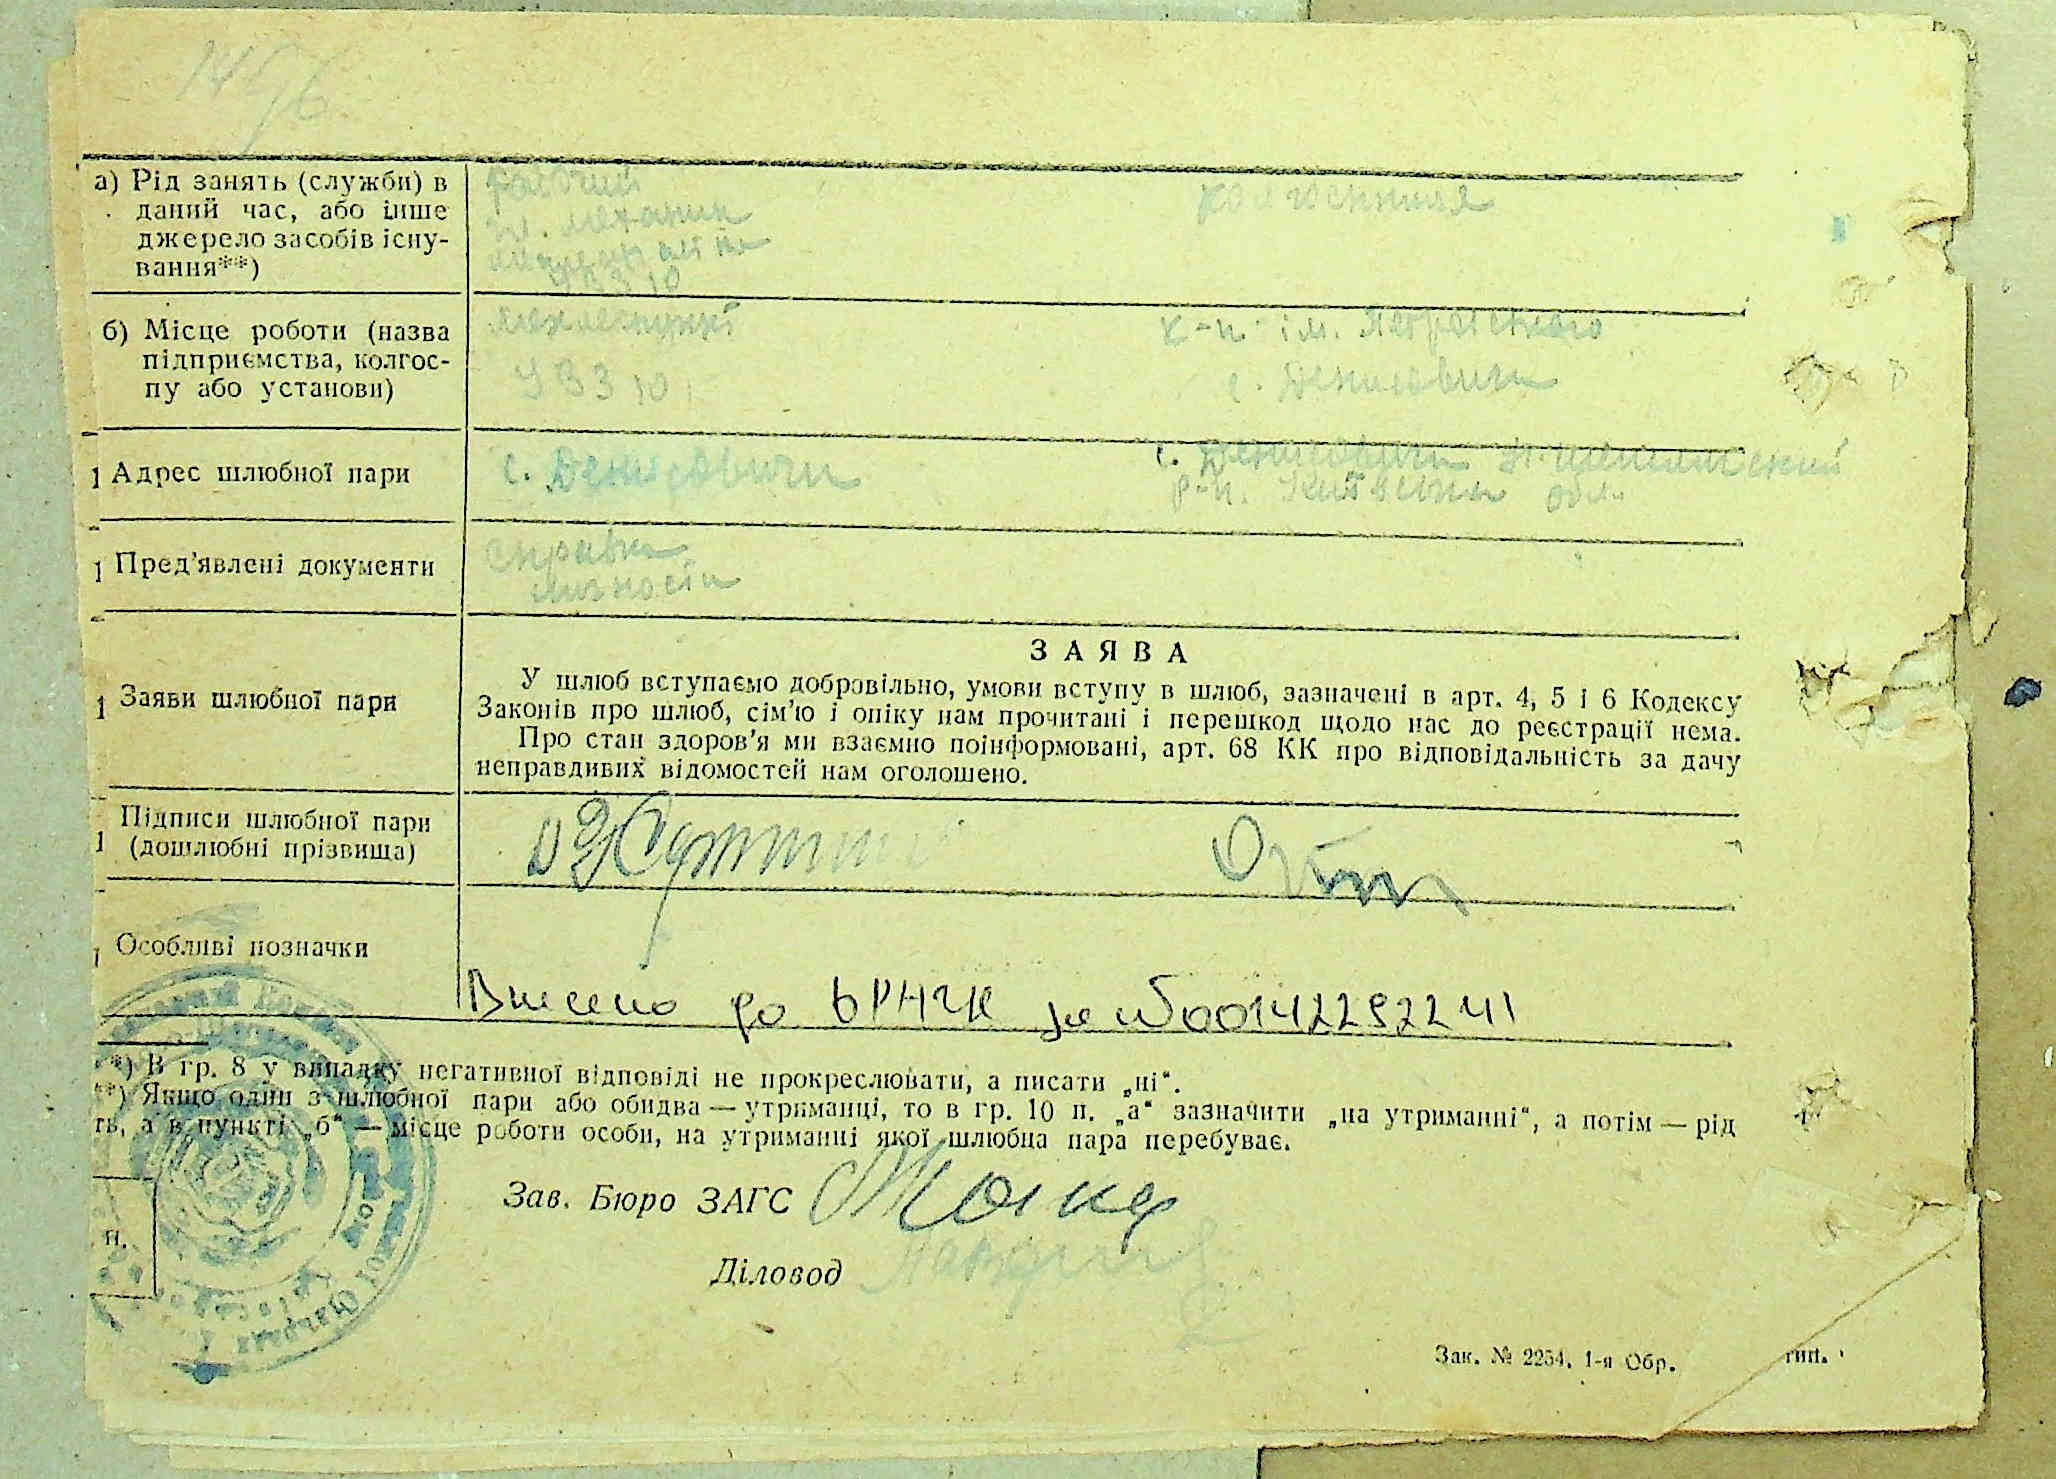 а) Рід занять (служби) в
даний час, або інше
джерело засобів існу-
вання**)
рабочий
колгоспниця
УВЗ 10
б) Місце роботи (назва
підприємства, колгос-
пу або установи)
УВЗ 10
к-п ім. Петровського
с. Денисовичи
1 Адрес шлюбної пари
с. Денисовичи
с. Денисовичи
р-н. Київська обл.
1 Пред'явлені документи
справка
личности
ЗАЯВА
1 Заяви шлюбної пари
У шлюб вступаємо добровільно, умови вступу в шлюб, зазначені в арт. 4, 5 і 6 Кодексу
Законів про шлюб, сім'ю і опіку нам прочитані і перешкод щодо нас до реєстрації нема.
Про стан здоров'я ми взаємно поінформовані, арт. 68 КК про відповідальність за дачу
неправдивих відомостей нам оголошено.
1 Підписи шлюбної пари
(дошлюбні прізвища)
Особливі позначки
Внесено до за №00142292241
**) В гр. 8 у випадку негативної відповіді не прокреслювати, а писати „ні“.
**) Якщо один з шлюбної пари або обидва — утриманці, то в гр. 10 п. „а“ зазначити „на утриманні“, а потім — рід
ть, а в пункті „б“ — місце роботи особи, на утриманні якої шлюбна пара перебуває.
Зав. Бюро ЗАГС
п.
Діловод
Зак. № 2254. 1-я Обр.
тип.